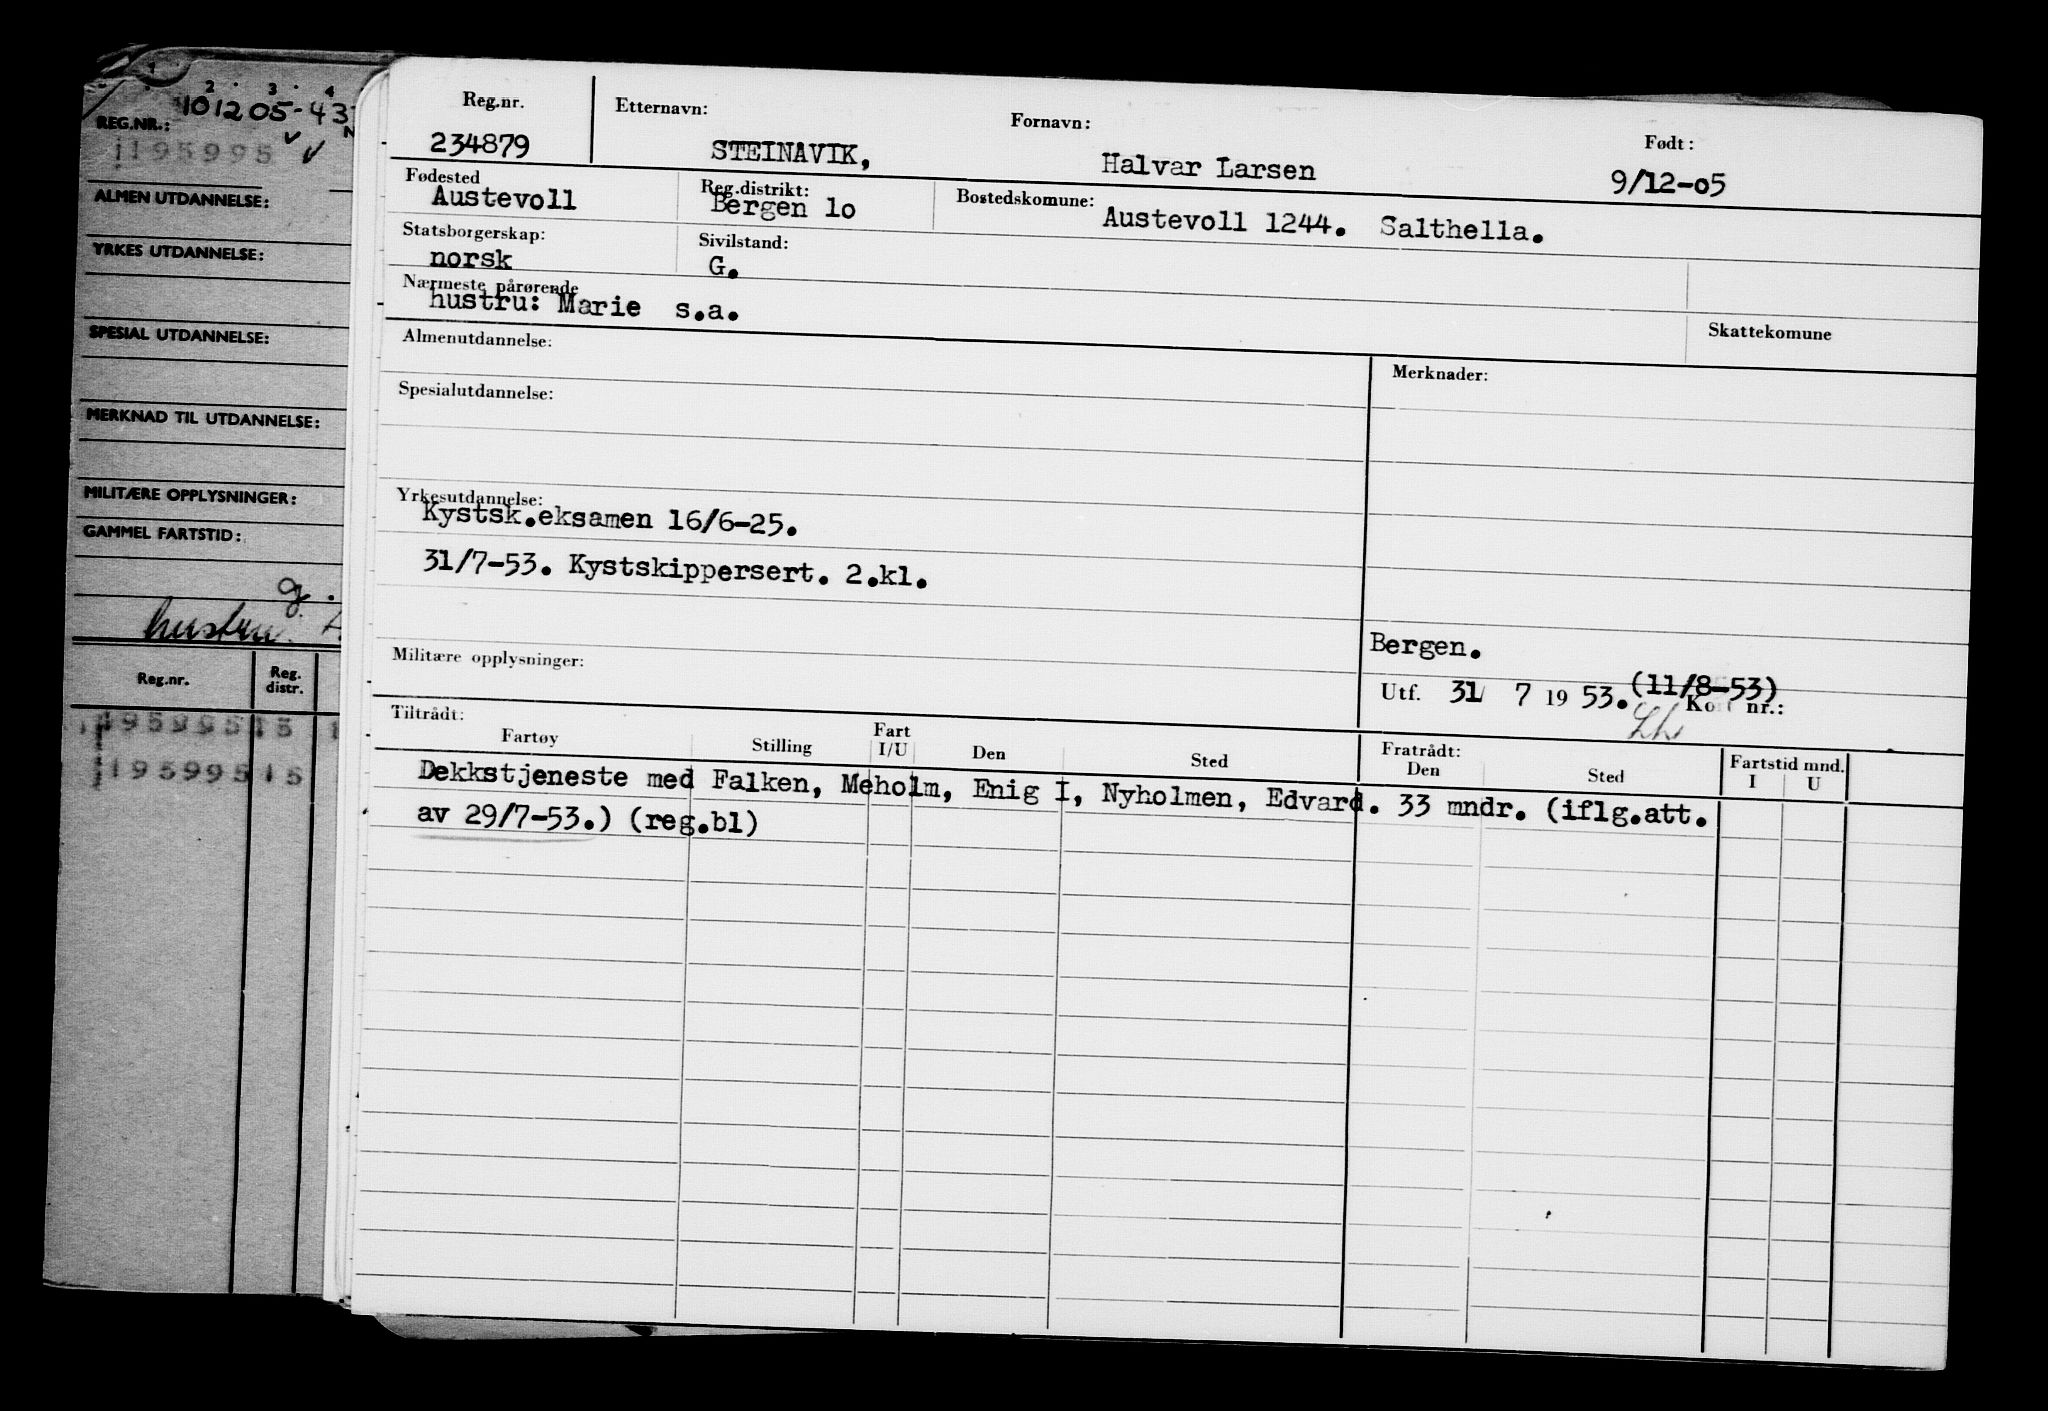 1 2 3 4
101205-43
REG.NR.:
195995
ALMEN UTDANNELSE:
YRKES UTDANNELSE:
SPESIAL UTDANNELSE:
MERKNAD TIL UTDANNELSE:
MILITÆRE OPPLYSNINGER:
GAMMEL FARTSTID:
g.
hustru.
Reg.nr. Reg. distr.
195995 15
195995 15
Reg.nr. Etternavn: Fornavn: Født:
234879 STEINAVIK, Halvar Larsen 9/12-o5
Fødested Reg.distrikt: Bostedskomune:
Austevoll Bergen lo Austevoll 1244. Salthella.
Statsborgerskap: Sivilstand:
norsk G.
Nærmeste pårørende
hustru: Marie s.a.
Skattekomune
Almenutdannelse: Merknader:
Spesialutdannelse:
Yrkesutdannelse:
Kystsk.eksamen 16/6-25.
31/7-53. Kystskippersert. 2.kl.
Bergen.
Militære opplysninger:
Utf. 31 7 19 53. (11/8-53)
Kort nr.:
Tiltrådt: Fratrådt:
Fartøy Stilling Fart I/U Den Sted Den Sted Fartstid mnd. I U
Dekkstjeneste med Falken, Meholm, Enig I, Nyholmen, Edvard. 33 mndr. (iflg.att.
av 29/7-53.) (reg.bl)